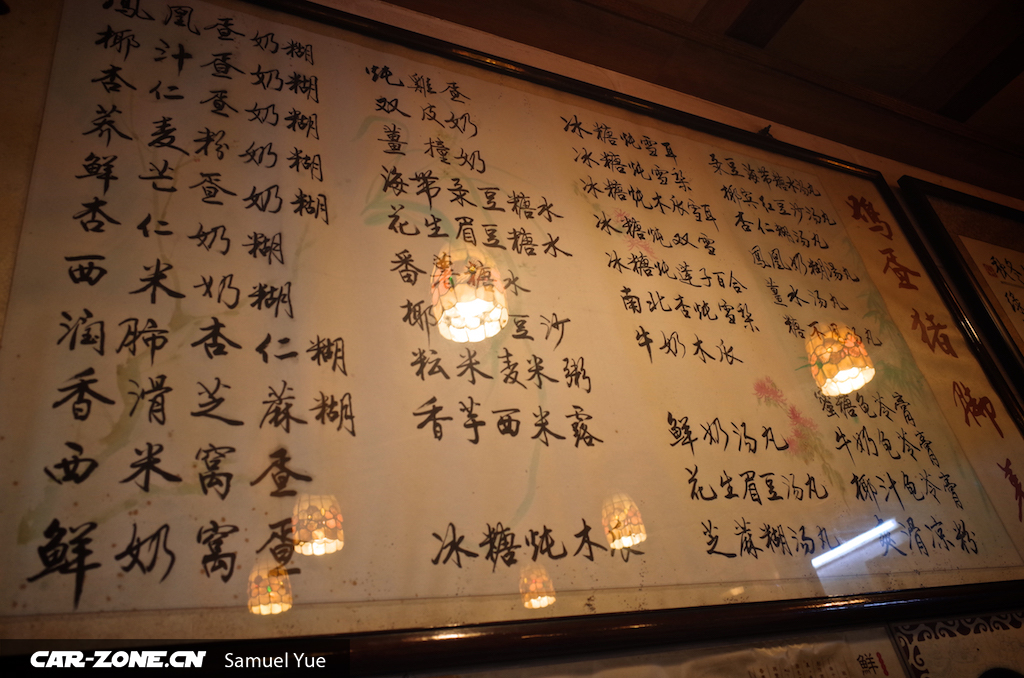 鳳凰蛋奶糊
椰汁蛋奶糊
杏仁蛋奶糊
荞麦粉奶糊
鮮芒蛋奶糊
杏仁奶糊
西米奶糊
润肺杏仁糊
香滑芝蔴糊
西米窝蛋
鮮奶窝蛋
炖雞蛋
双皮奶
薑撞奶
海带菉豆糖水
花生眉豆糖水
番糖水
椰豆沙
米麦米粥
香芋西米露
冰糖炖木
冰糖炖雪耳
冰糖炖雪梨
冰糖炖木瓜雪耳
冰糖炖双雪
冰糖炖莲子百合
南北杏炖雪梨
牛奶木瓜
鮮奶汤丸
花生眉豆汤丸
芝蔴糊汤丸
菉豆海带糖水汤丸
椰奕红豆沙汤丸
杏仁糊汤丸
鳳凰奶糊汤丸
薑水汤丸
糖不丸
蜜糖龟苓膏
牛奶龟苓膏
椰汁龟苓膏
爽滑凉粉
鸡蛋猪脚姜
鮮
CAR-ZONE.CN Samuel Yue